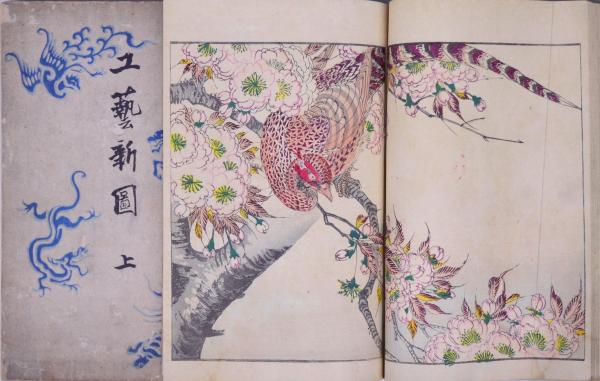 工藝新圖
上